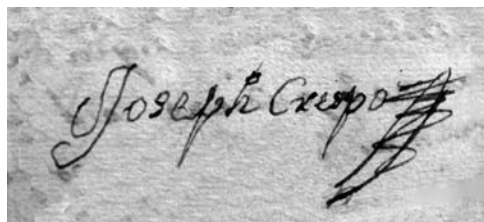 Joseph Crespo